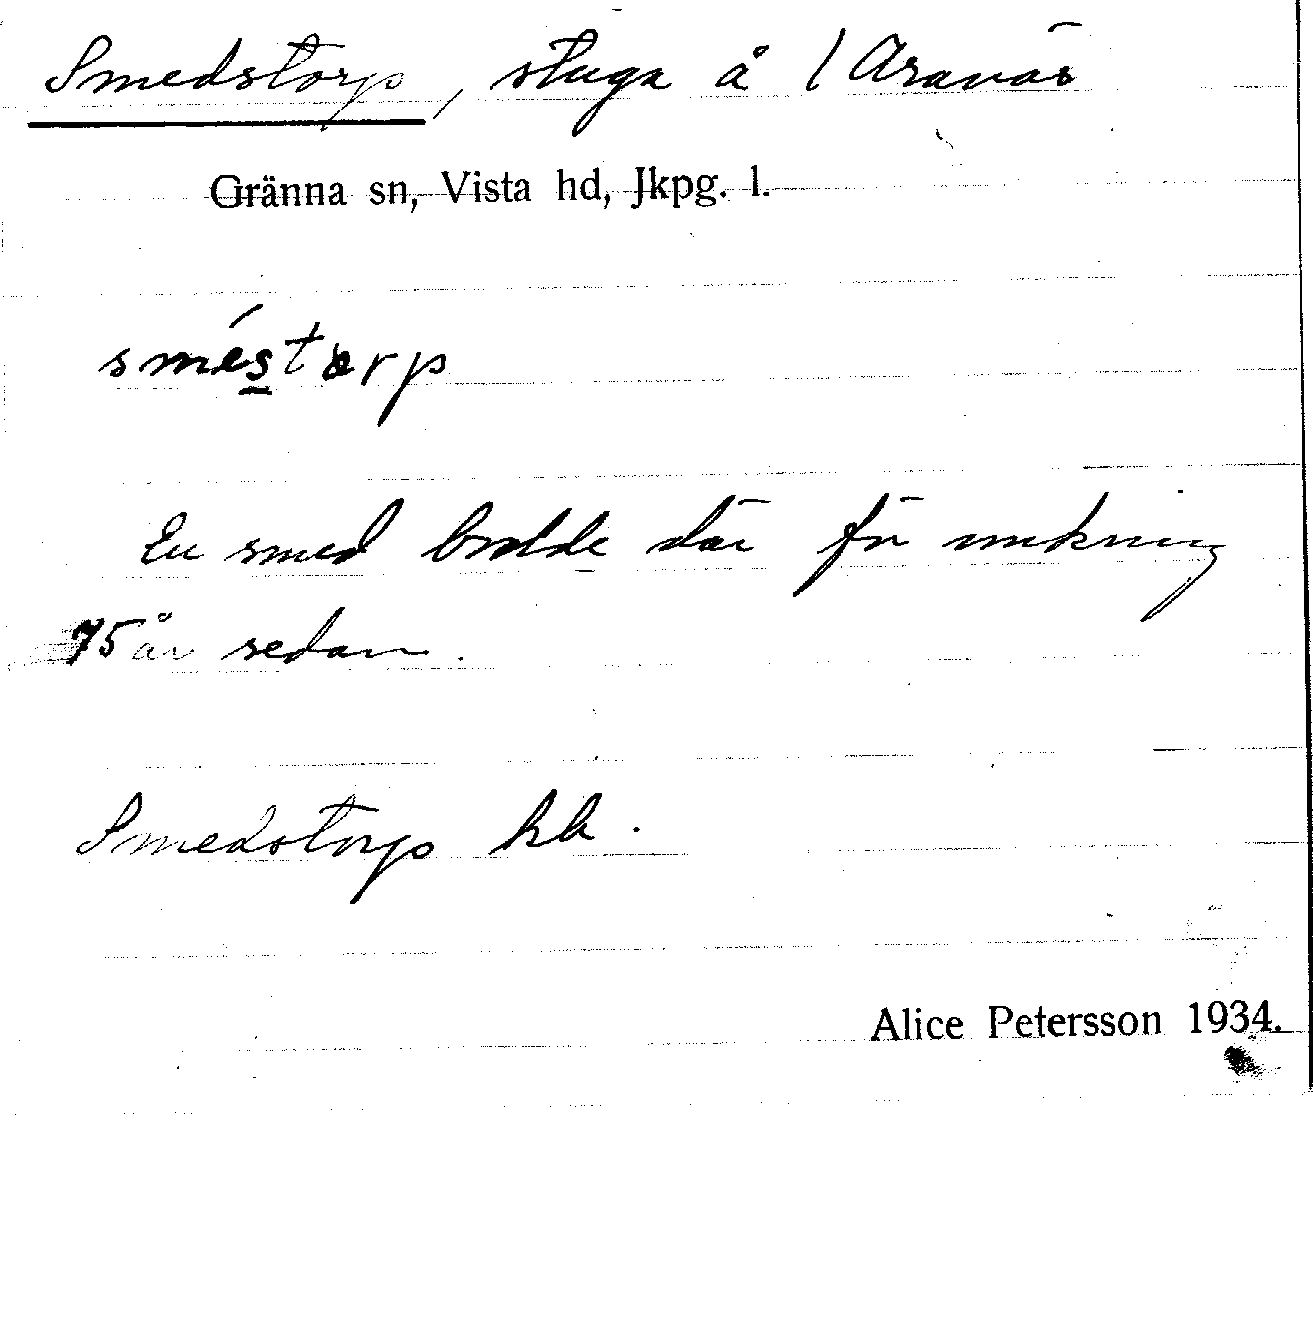 Smedstorp, stuga å 1 Aranäs
Gränna sn, Vista hd, Jkpg. l.
sméstorp
En smed bodde där för omkring
75 år sedan.
Smedstorp hk.
Alice Petersson 1934.